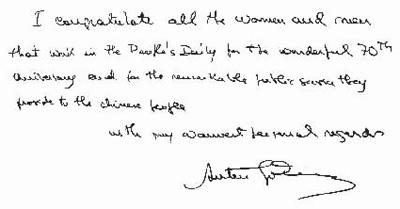 I congratulate all the women and men
that work in the People's Daily for the wonderful 70TH
anniversary and for the remarkable public service they
provide to the chinese people
with my warmest personal regards